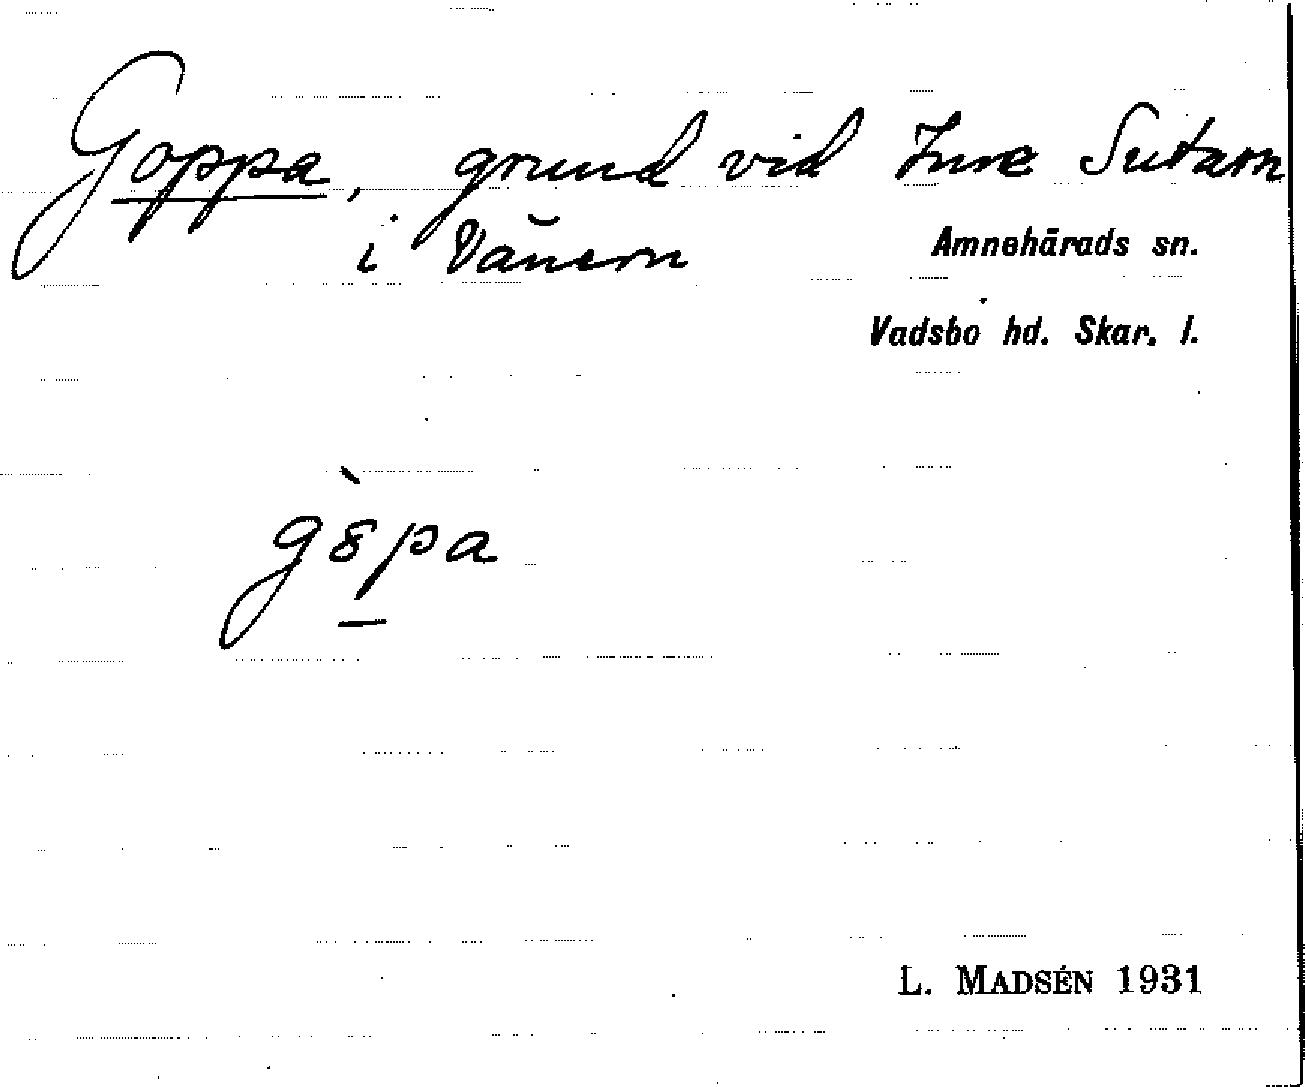 Goppa, grund vid Inre Sutarn
i Vänern
Amnehärads sn.
Vadsbo hd. Skar. l.
g8̀pa
L. MADSÉN 1931